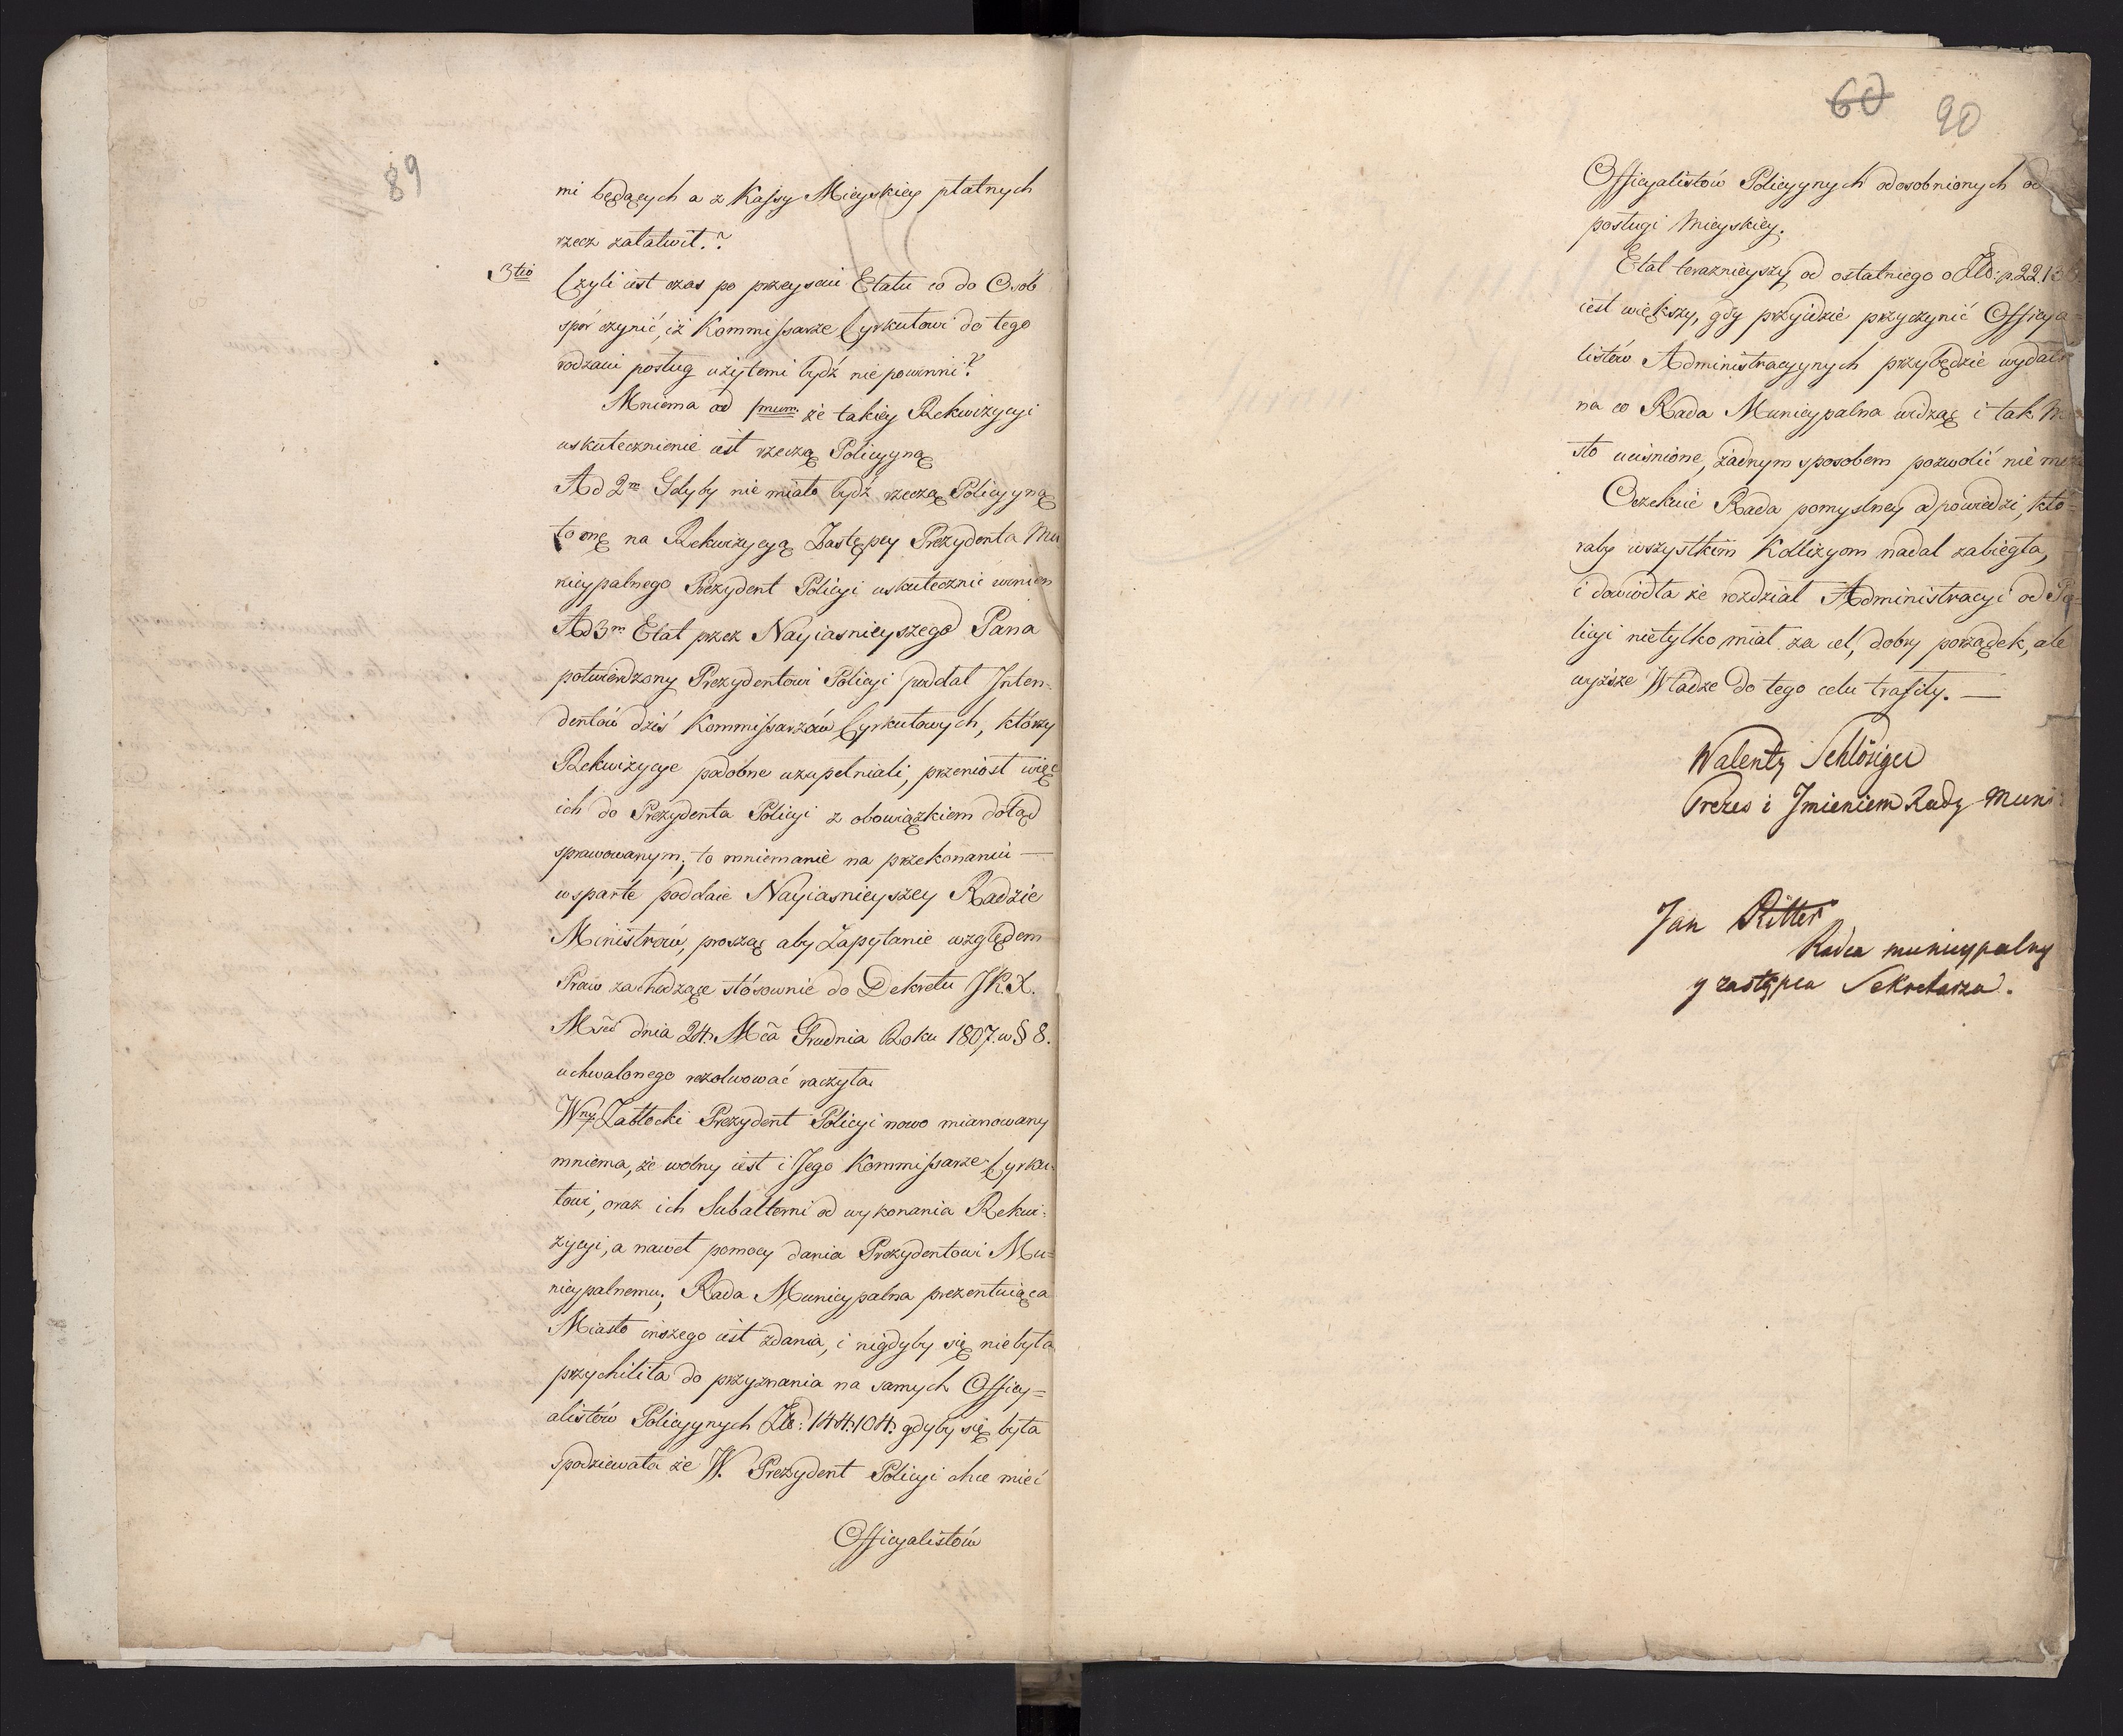 89
mi będących a z Kassy Mieyskiey płatnych
rzecz załatwił.?
3tio Czyli iest czas po przeysciu Etatu co do Osób
spór czynić, iż Kommissarze Cyrkułowi do tego
rodzaiu posług użytemi bydź nie powinni?
Mniema ad 1mum że takiey Rekwizycyi
uskutecznienie iest rzeczą Policyyną
Ad 2m Gdyby nie miało bydź rzeczą Policyyną
to onę na Rekwizycyą Zastępcy Prezydenta Mu
nicypalnego Prezydent Policyi uskutecznić winien
Ad 3m Etat przez Nayiasnieyszego Pana
potwierdzony Prezydentowi Policyi poddał Inten-
dentów dziś Kommissarzów Cyrkułowych, którzy
Rekwizycye podobne uzupełniali, przeniosł więc
ich do Prezydenta Policyi z obowiązkiem dotąd
sprawowanym; to mniemanie na przekonaniu —
wsparte poddaie Nayiasnieyszey Radzie
Ministrów, prosząc aby Zapytanie względem
Praw zachodzące stósownie do Dekretu JK.X.
Mści dnia 24. Mca Grudnia Roku 1807. w § 8.
uchwalonego rezolwować raczyła.
Wny Zabłocki Prezydent Policyi nowo mianowany
mniema, że wolny iest i Jego Kommissarze Cyrku-
łowi, oraz ich Subalterni od wykonania Rekwi-
zycyi, a nawet pomocy dania Prezydentowi Mu=
nicypalnemu; Rada Municypalna prezentuiąca
Miasto inszego iest zdania, i nigdyby się nie była
przychiliła do przyznania na samych Officy=
alistów Policyynych Zło: 144.104. gdyby się była
spodziewała że W. Prezydent Policyi chce mieć
Officyalistów
60 90
Officyalistów Policyynych odosobnionych od
posługi Mieyskiey.
Etat teraznieyszy od ostatniego o Zło: p. 22.13
iest większy, gdy przyidzie przyczynić Officya-
listów Administracyynych przybędzie wydatk
na co Rada Municypalna widząc i tak M
sto uciśnione, żadnym sposobem pozwolić nie moż
Oczekuie Rada pomyslney odpowiedzi, któ-
raby wszystkim Kollizyom nadal zabiegła,
i dowiodła że rozdział Administracyi od Po-
licyi nietylko miał za cel, dobry porządek, ale
wyższe Władze do tego celu trafiły. —
Walenty Schlösiger
Prezes i Jmieniem Rady Muni
Jan Ritter
Radca municypalny
y zastępca Sekretarza.